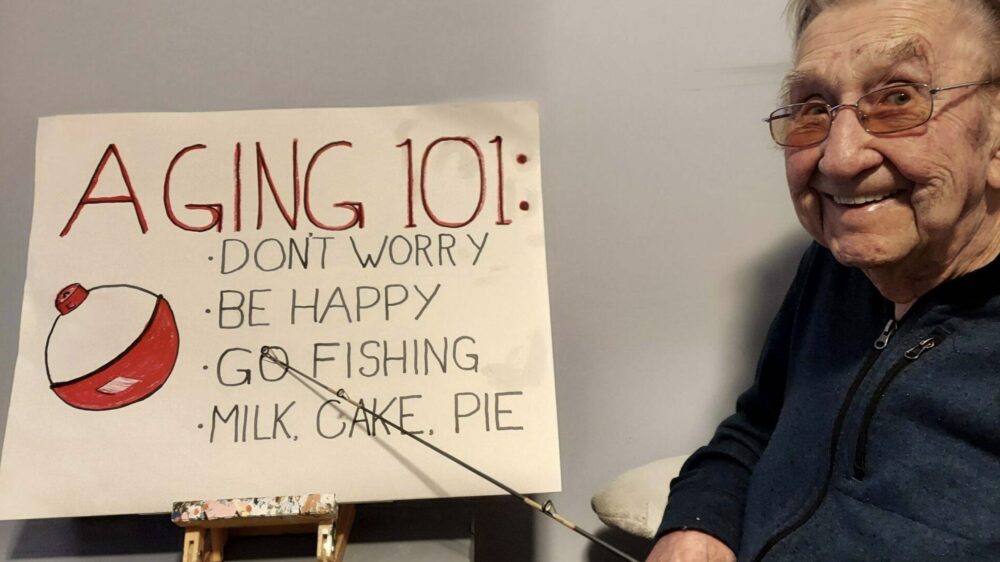 AGING 101:
· DON'T WORRY
· BE HAPPY
· GO FISHING
· MILK, CAKE, PIE